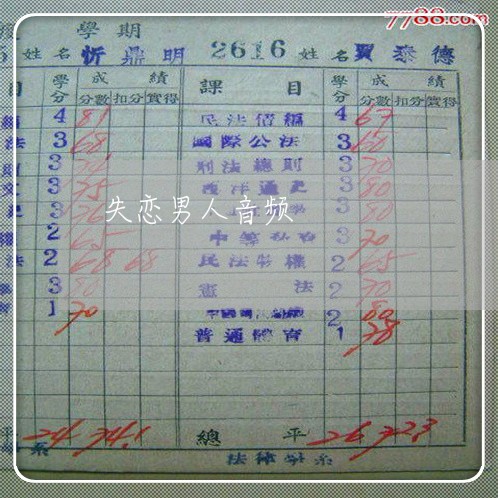 7788.com
學期
姓名 忻鼎明 2616 姓名 賈泰德
目 學分 成績 課目 學分 成績
分數 扣分 實得 分數 扣分 實得
4 81 民法債編 4 67
法 3 68 國際公法 3 60
3 刑法總則 3 70
3 75 西洋通史 3 80
3 3 80
失恋男人音频
2 65 3 70
法 2 68 68 民法物權 2 65
3 80 憲法 2 70
1 70 2 80
普通體育 1 78
平 24 74.1 總平 26 72.3
系 法律學系